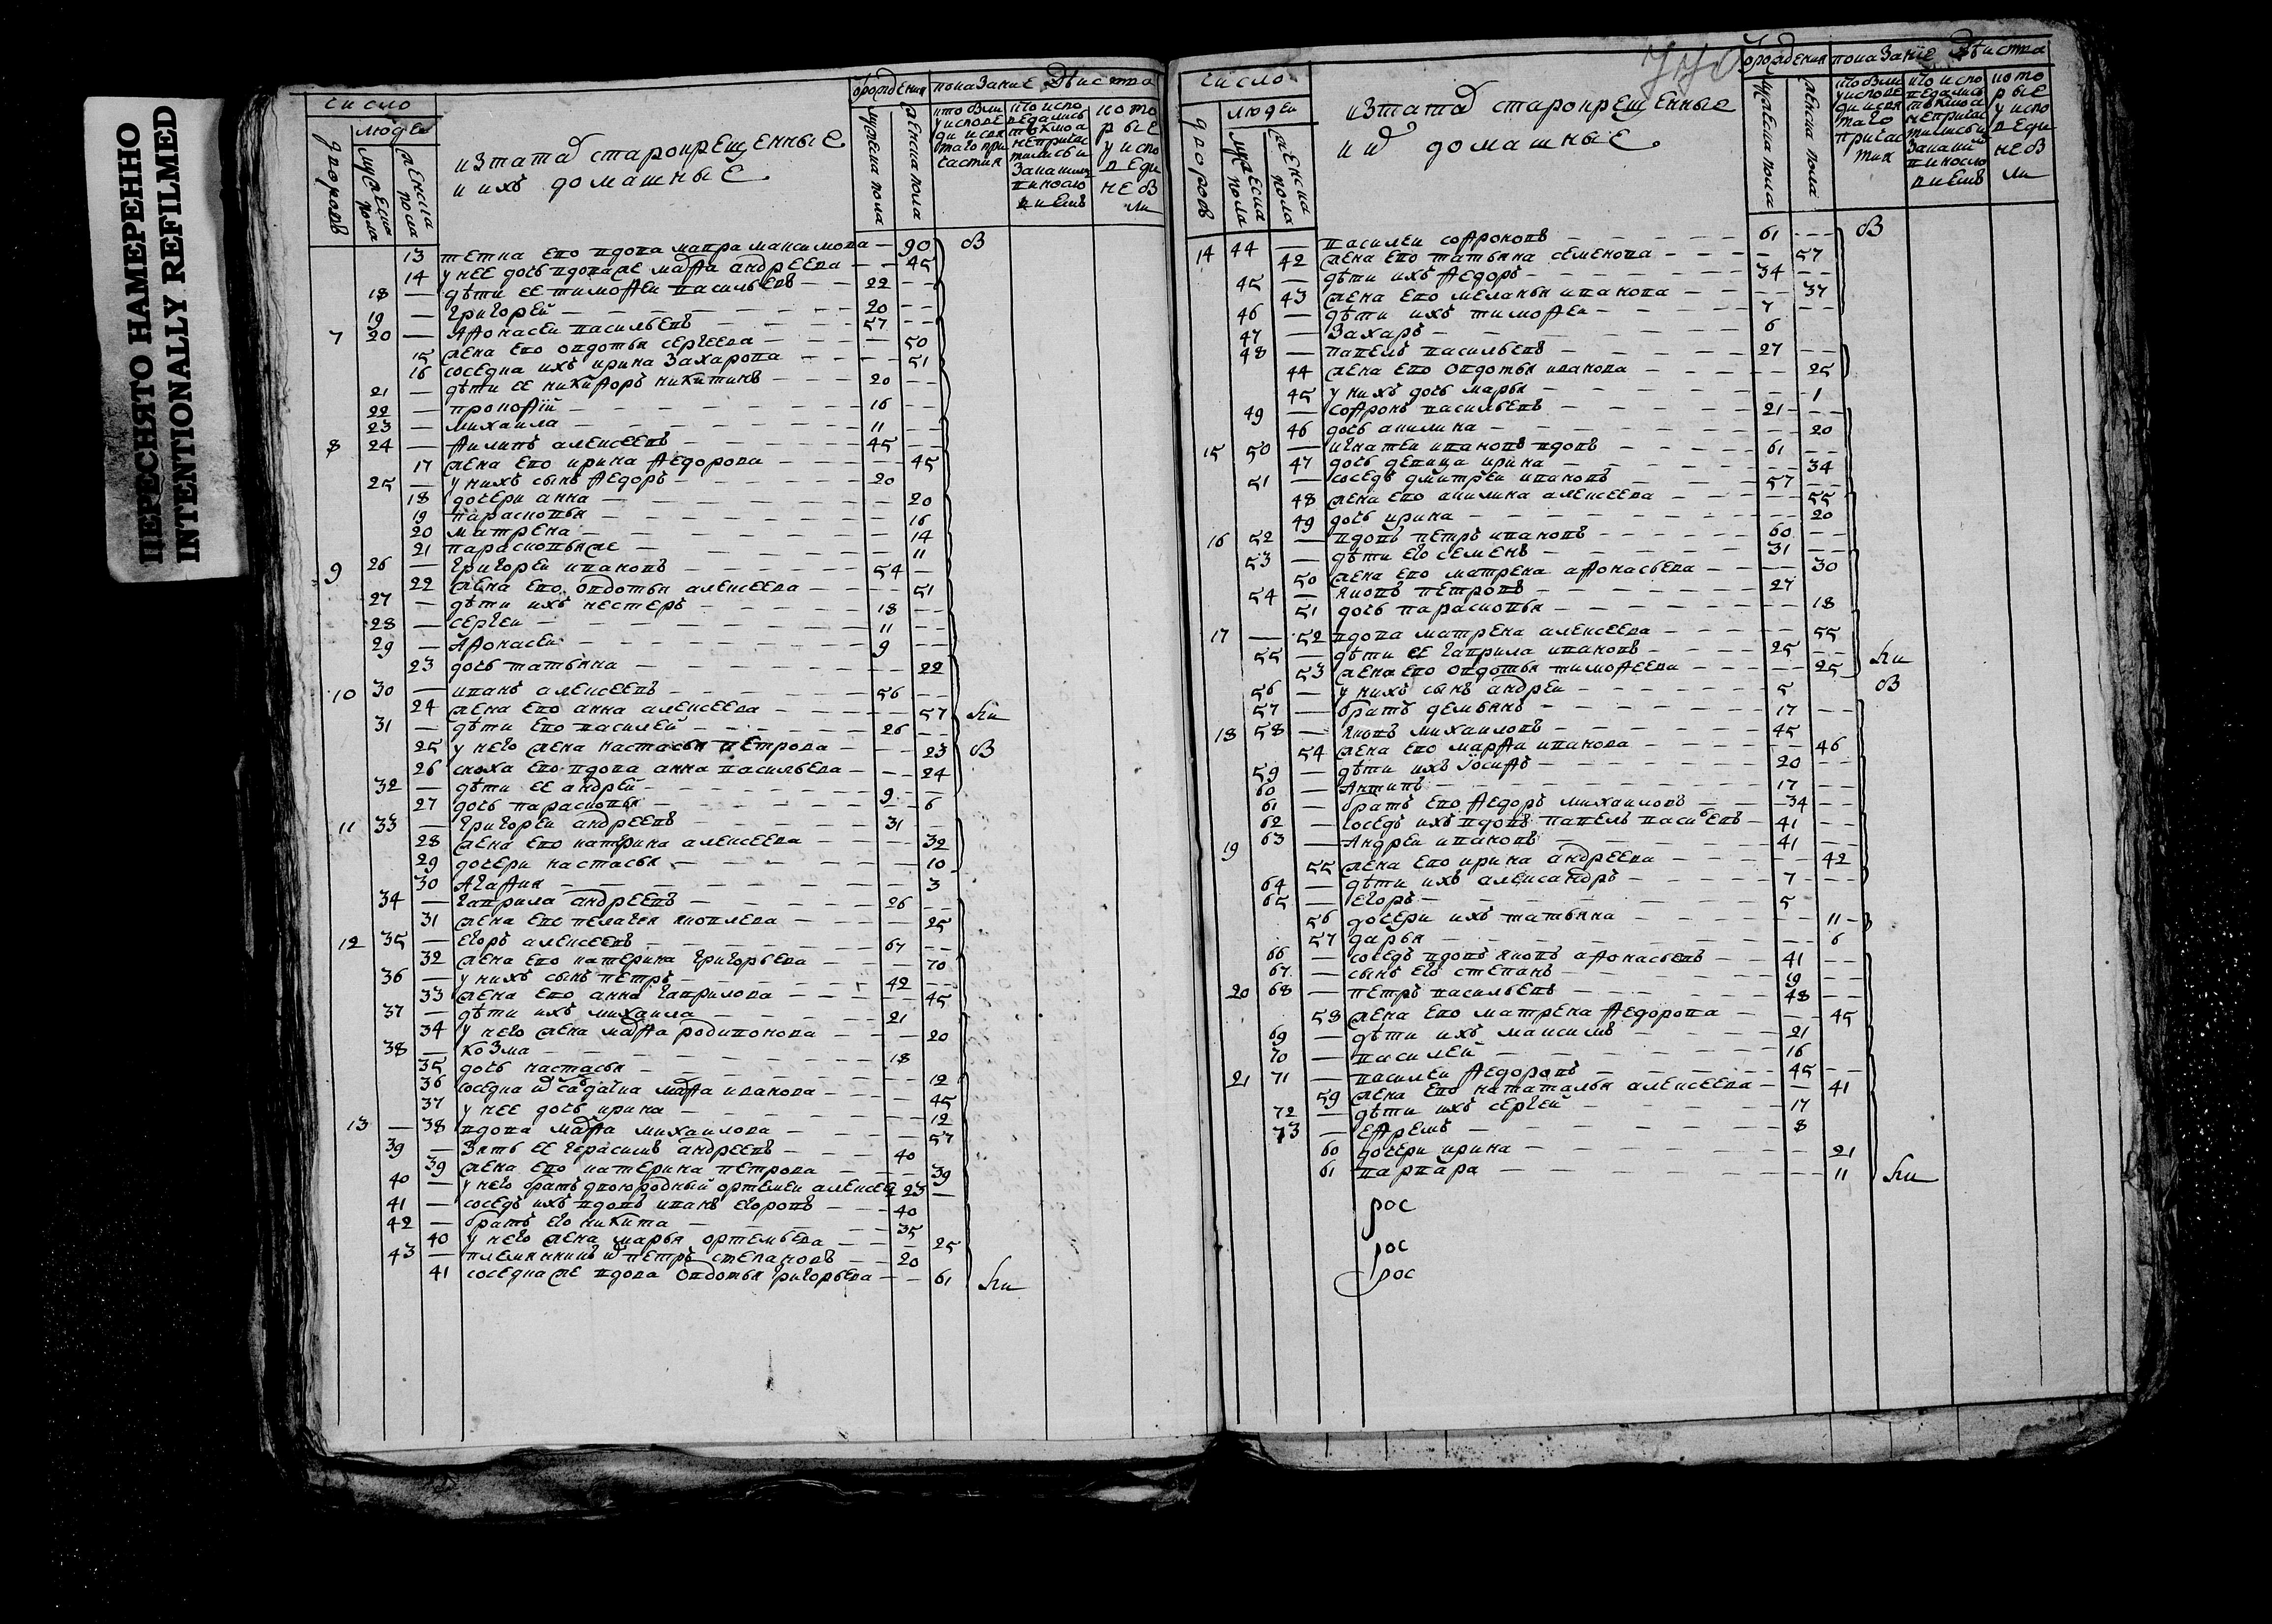 ПЕРЕСНЯТО НАМЕРЕННО
INTENTIONALLY REFILMED
число
людеи
дворовъ
мужеска пола
женска пола
изтатаръ старокрещенные
и ихъ домашные
отрождения
мужеска пола
женска пола
показание действа
13 тетка ево вдова мавра максимова — 90 в
14 у нее дочь вдова же марфа андреева — 45
18 — дѣти ее тимофеи васильевъ — 22
19 — григорей — 20
7 20 — Афонасеи васильевъ — 57
15 жена ево овдотья сергеева — 50
16 соседка ихъ ирина захарова — 51
21 — дѣти ее никифоръ никитинъ — 20
22 — прокофїй — 16
23 — михаила — 11
8 24 — филипъ алексеевъ — 45
17 жена ево ирина федорова — 45
25 — у нихъ сынъ федоръ — 20
18 дочери анна — 20
19 парасковья — 16
20 матрена — 14
21 парасковья же — 11
9 26 — григореи ивановъ — 54
22 жена ево овдотья алексеева — 51
27 — дѣти ихъ нестеръ — 18
28 — сергеи — 11
29 — Афонасеи — 9
23 дочь татьяна — 22
10 30 — иванъ алексеевъ — 56
24 жена ево анна алексеева — 57
31 — дѣти ево василей — 26
25 у него жена настасья петрова — 23 в
26 сноха ево вдова анна васильева — 24
32 — дѣти ее андрей — 9
27 дочь парасковья — 6
11 33 — григореи андреевъ — 31
28 жена ево катерина алексеева — 32
29 дочери настасья — 10
30 Агафия — 3
34 — гаврила андреевъ — 26
31 жена ево пелагея яковлева — 25
12 35 — егоръ алексеевъ — 67
32 жена ево катерина григорьева — 70
36 — у нихъ сынъ петръ — 42
33 жена ево анна гаврилова — 45
37 — дѣти ихъ михаила — 21
34 у него жена марфа родивонова — 20
38 — козма — 18
35 дочь настасья — 12
36 соседка марфа иванова — 45
37 у нее дочь ирина — 12
13 — 38 вдова марфа михаилова — 57
39 — зять ее герасимъ андреевъ — 40
39 жена ево катерина петрова — 39
40 — у него братъ двоюродный ортемеи алексеевъ 23
41 — соседъ ихъ вдовъ иванъ егоровъ — 40
42 — братъ его никита — 35
40 у него жена марья ортемьева — 25
43 — племянникъ петръ степановъ — 20
41 соседка же вдова овдотья григорьева — 61
число
людеи
дворовъ
мужеска пола
женска пола
изтатаръ старокрещенные
и их домашные
отрождения
мужеска пола
женска пола
показанїе действа
14 44 — василеи софроновъ — 61 в
42 жена ево татьяна семенова — 57
45 — дѣти ихъ федоръ — 34
43 жена ево меланья иванова — 37
46 — дѣти ихъ тимофеи — 7
47 — захаръ — 6
48 — павелъ васильевъ — 27
44 жена ево овдотья иванова — 25
45 у нихъ дочь марья — 1
49 — софронъ васильевъ — 21
46 дочь акилина — 20
15 50 — игнатеи ивановъ вдовъ — 61
47 дочь девица ирина — 34
51 — соседъ дмитреи ивановъ — 57
48 жена ево акилина алексеева — 55
49 дочь ирина — 20
16 52 — вдовъ петръ ивановъ — 60
53 — дѣти его семенъ — 31
50 жена ево матрена афонасьева — 30
54 — яковъ петровъ — 27
51 дочь парасковья — 18
17 — 52 вдова матрена алексеева — 55
55 — дѣти ее гаврила ивановъ — 25
53 жена ево овдотья тимофеева — 25
56 — у нихъ сынъ андреи — 5 в
57 — братъ демьянъ — 17
18 58 — яковъ михаиловъ — 45
54 жена ево марфа иванова — 46
59 — дѣти ихъ їосифъ — 20
60 — Антипъ — 17
61 — братъ ево федоръ михаиловъ — 34
62 — соседъ ихъ вдовъ павелъ васильевъ — 41
19 63 — Андреи ивановъ — 41
55 жена ево ирина андреева — 42
64 — дѣти ихъ александръ — 7
65 — егоръ — 5
56 дочери ихъ татьяна — 11
57 дарья — 6
66 — соседъ вдовъ яковъ афонасьевъ — 41
67 — сынъ его степанъ — 9
20 68 — петръ васильевъ — 48
58 жена ево матрена федорова — 45
69 — дѣти ихъ максимъ — 21
70 — василей — 16
21 71 — василеи федоровъ — 45
59 жена ево наталья алексеева — 41
72 — дѣти ихъ сергей — 17
73 — ефремъ — 8
60 дочери ирина — 21
61 варвара — 11
рос
рос
рос